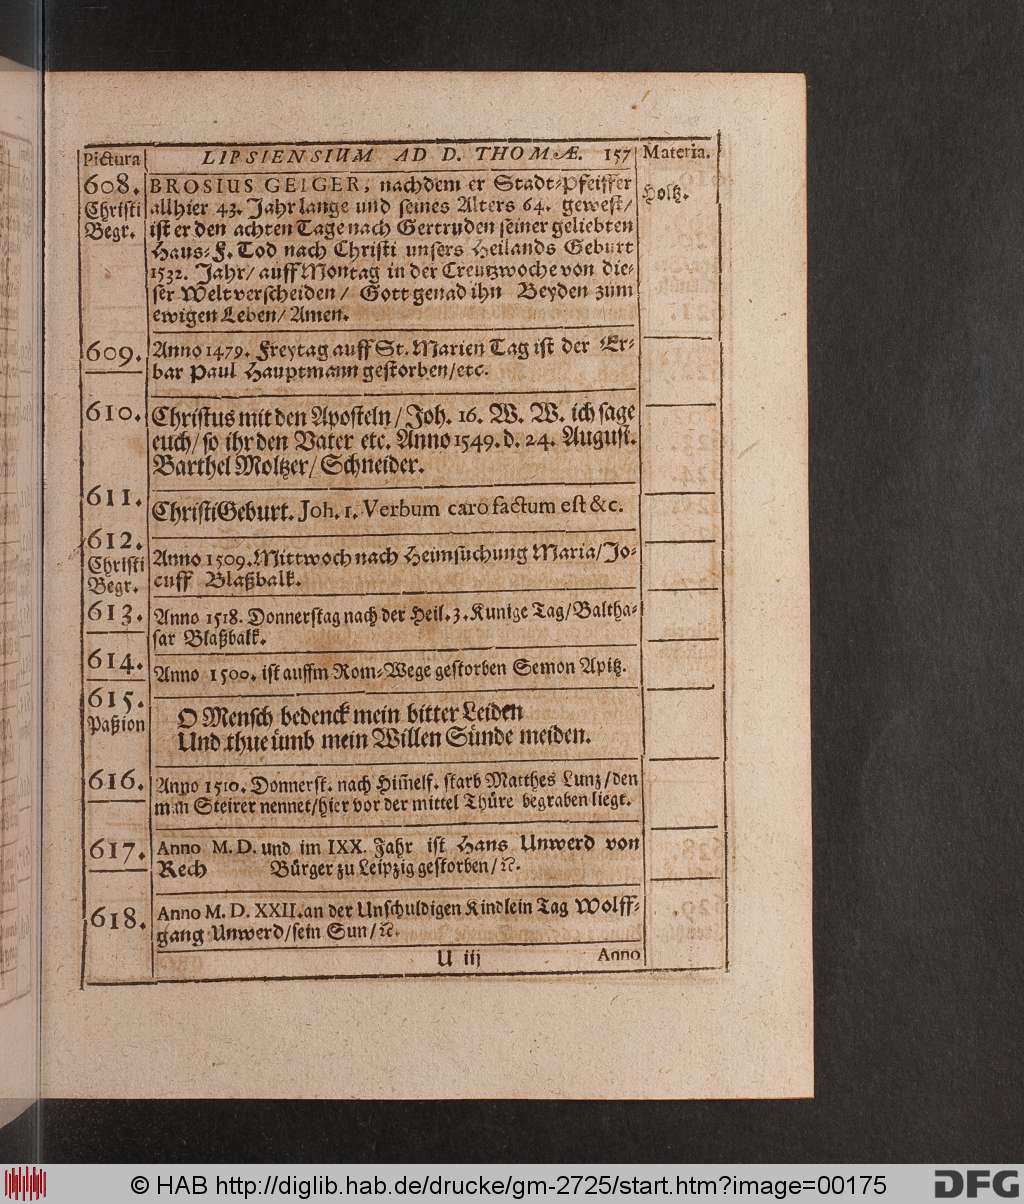 Pictura LIPSIENSIUM AD D. THOMÆ. 157 Materia.
608. BROSIUS GEIGER, nachdem er Stadt-Pfeiffer
Christi allhier 43. Jahr lange und seines Alters 64. gewest/ Holtz.
Begr. ist er den achten Tage nach Gertruden seiner geliebten
Haus-F. Tod nach Christi unsers Heilands Geburt
1532. Jahr/ auff Montag in der Creutzwoche von die-
ser Welt verscheiden/ Gott genad ihn Beyden zum
ewigen Leben/ Amen.
609. Anno 1479. Freytag auff St. Marien Tag ist der Er-
bar Paul Hauptmann gestorben/ etc.
610. Christus mit den Aposteln/ Joh. 16. W. W. ich sage
euch/ so ihr den Vater etc. Anno 1549. d. 24. August.
Barthel Moltzer/ Schneider.
611. Christi Geburt. Joh. 1. Verbum caro factum est &c.
612. Anno 1509. Mittwoch nach Heimsuchung Maria/ Jo-
Christi cuff Blaßbalk.
Begr.
613. Anno 1518. Donnerstag nach der Heil. 3. Kunige Tag/ Baltha-
sar Blaßbalk.
614. Anno 1500. ist auffm Rom-Wege gestorben Semon Apitz.
615. O Mensch bedenck mein bitter Leiden
Paßion Und thue ümb mein Willen Sünde meiden.
616. Anno 1510. Donnerst. nach Him̃elf. starb Matthes Lunz/ den
man Steirer nennet/ hier vor der mittel Thüre begraben liegt.
617. Anno M. D. und im IXX. Jahr ist Hans Unwerd von
Rech Bürger zu Leipzig gestorben/ ꝛc.
618. Anno M. D. XXII. an der Unschuldigen Kindlein Tag Wolff-
gang Unwerd/ sein Sun/ ꝛc.
U iij Anno
© HAB http://diglib.hab.de/drucke/gm-2725/start.htm?image=00175
DFG